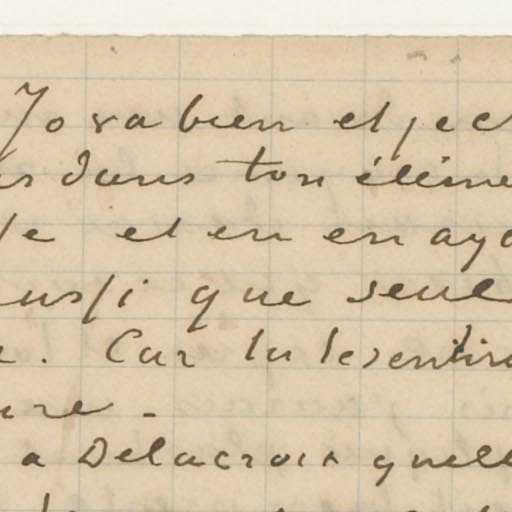 Jo va bien et je c
es dans ton éléme
le et en en aya
aussi que seule
e. Car tu le sentira
ure –
a Delacroix quelle